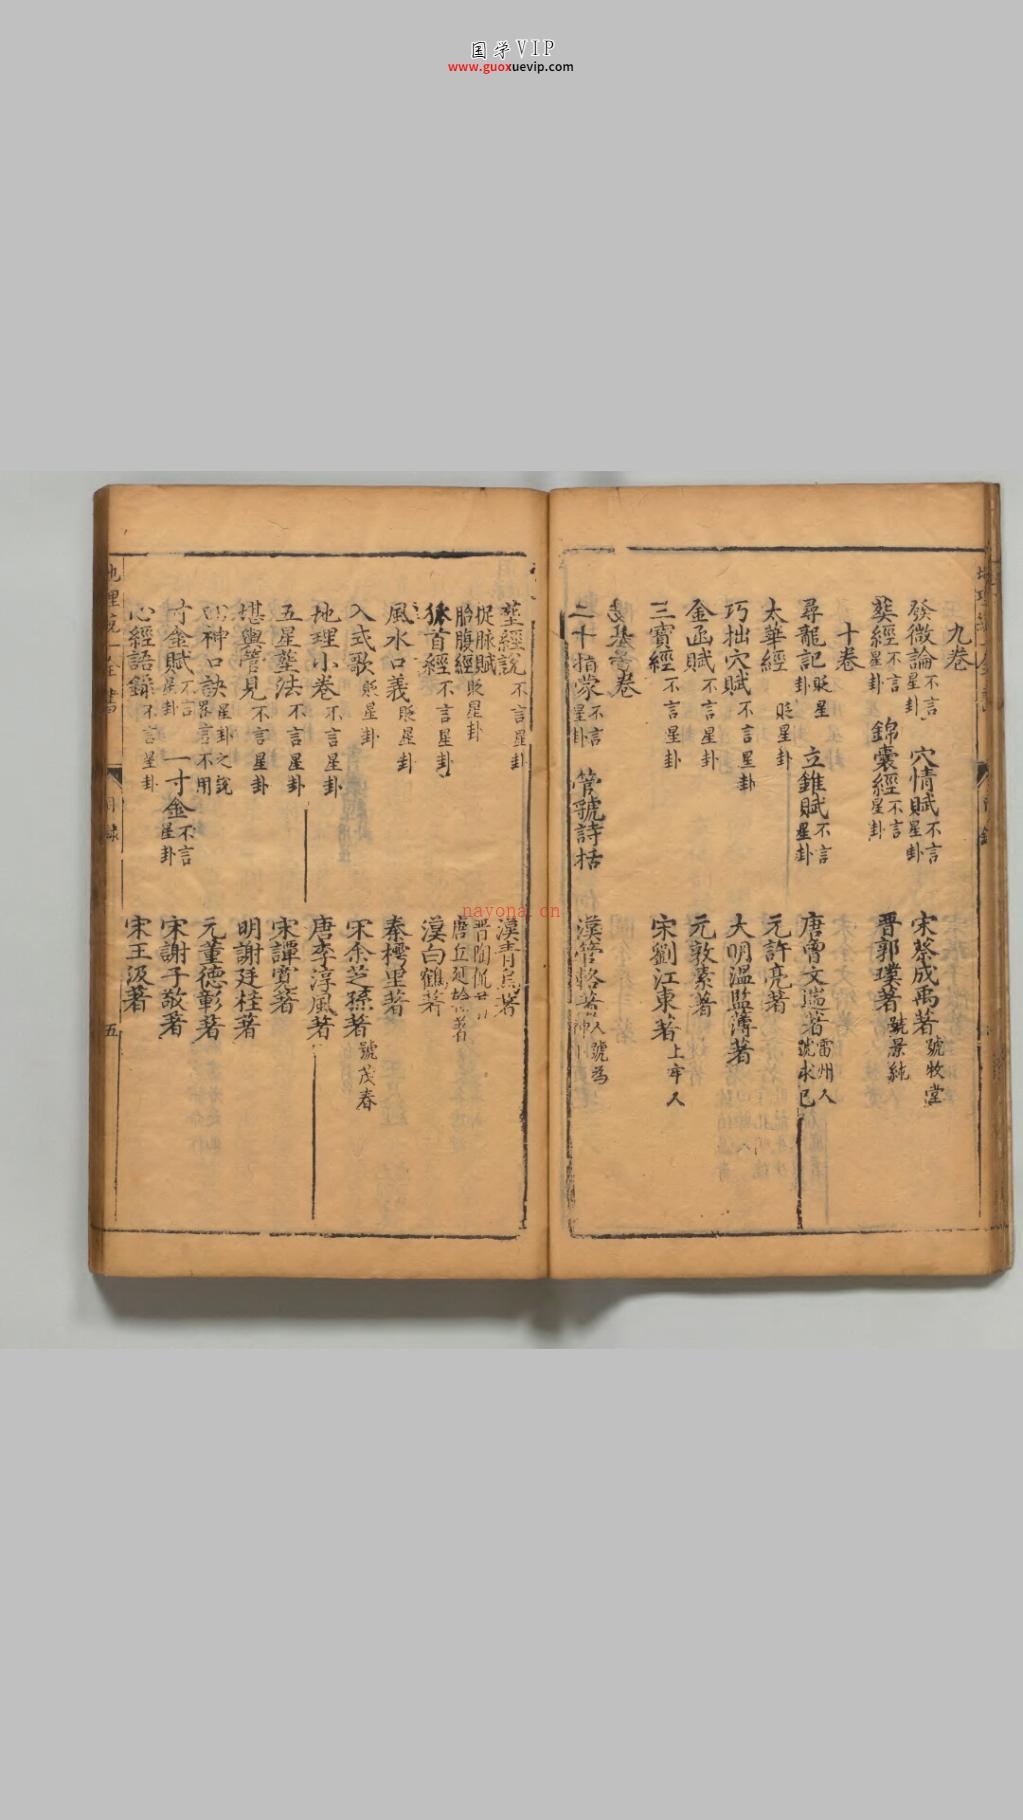 国学VIP
www.guoxuevip.com
九卷
發微論不言星卦 穴情賦不言星卦 宋蔡成禹著號牧堂
葬經不言星卦 錦囊經不言星卦 晋郭璞著號景純
十卷
尋龍記貶星卦 立錐賦不言星卦 唐曾文遄著雷州人號求已
太華經貶星卦 元許亮著
巧拙穴賦不言星卦 大明溫監薄著
金函賦不言星卦 元敦素著
三寶經不言星卦 宋劉江東著上牢人
卷
二十指蒙不言星卦 管虢詩括 漢管輅著人號為神
塟經說不言星卦 漢青烏著
捉脉賦貶星卦 晋陶侃
胎腹經 唐丘延翰著
狐首經不言星卦 漢白鶴著
風水口義貶星卦 秦樗里著
入式歌貶星卦 宋余芝孫著號茂春
地理小卷不言星卦 唐李淳風著
五星塟法不言星卦 宋譚寬著
堪輿管見不言星卦 明謝廷桂著
神口訣星卦之說畧言不用 元董德彰著
寸金賦不言星卦 一寸金不言星卦 宋謝子敬著
心經語錄不言星卦 宋王汲著
地理 全書
目録
五
nayona.cn